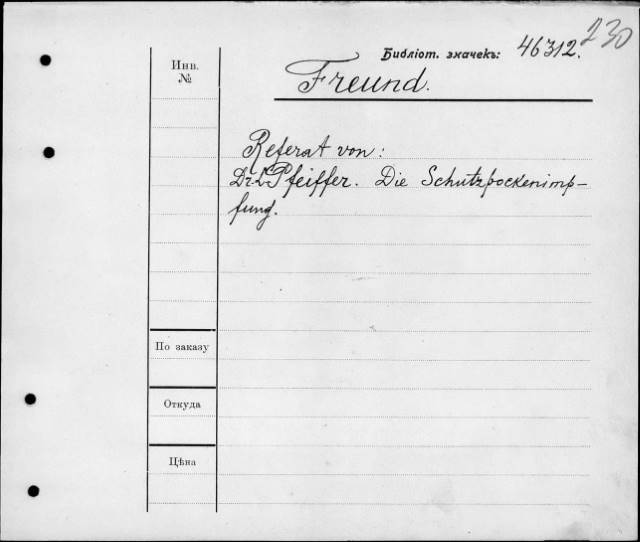 230
Библіот. значекъ: 46312.
Инв.
№
Freund.
Referat von:
Dr. L Pfeiffer. Die Schutzpockenimp-
fung.
По заказу
Откуда
Цѣна